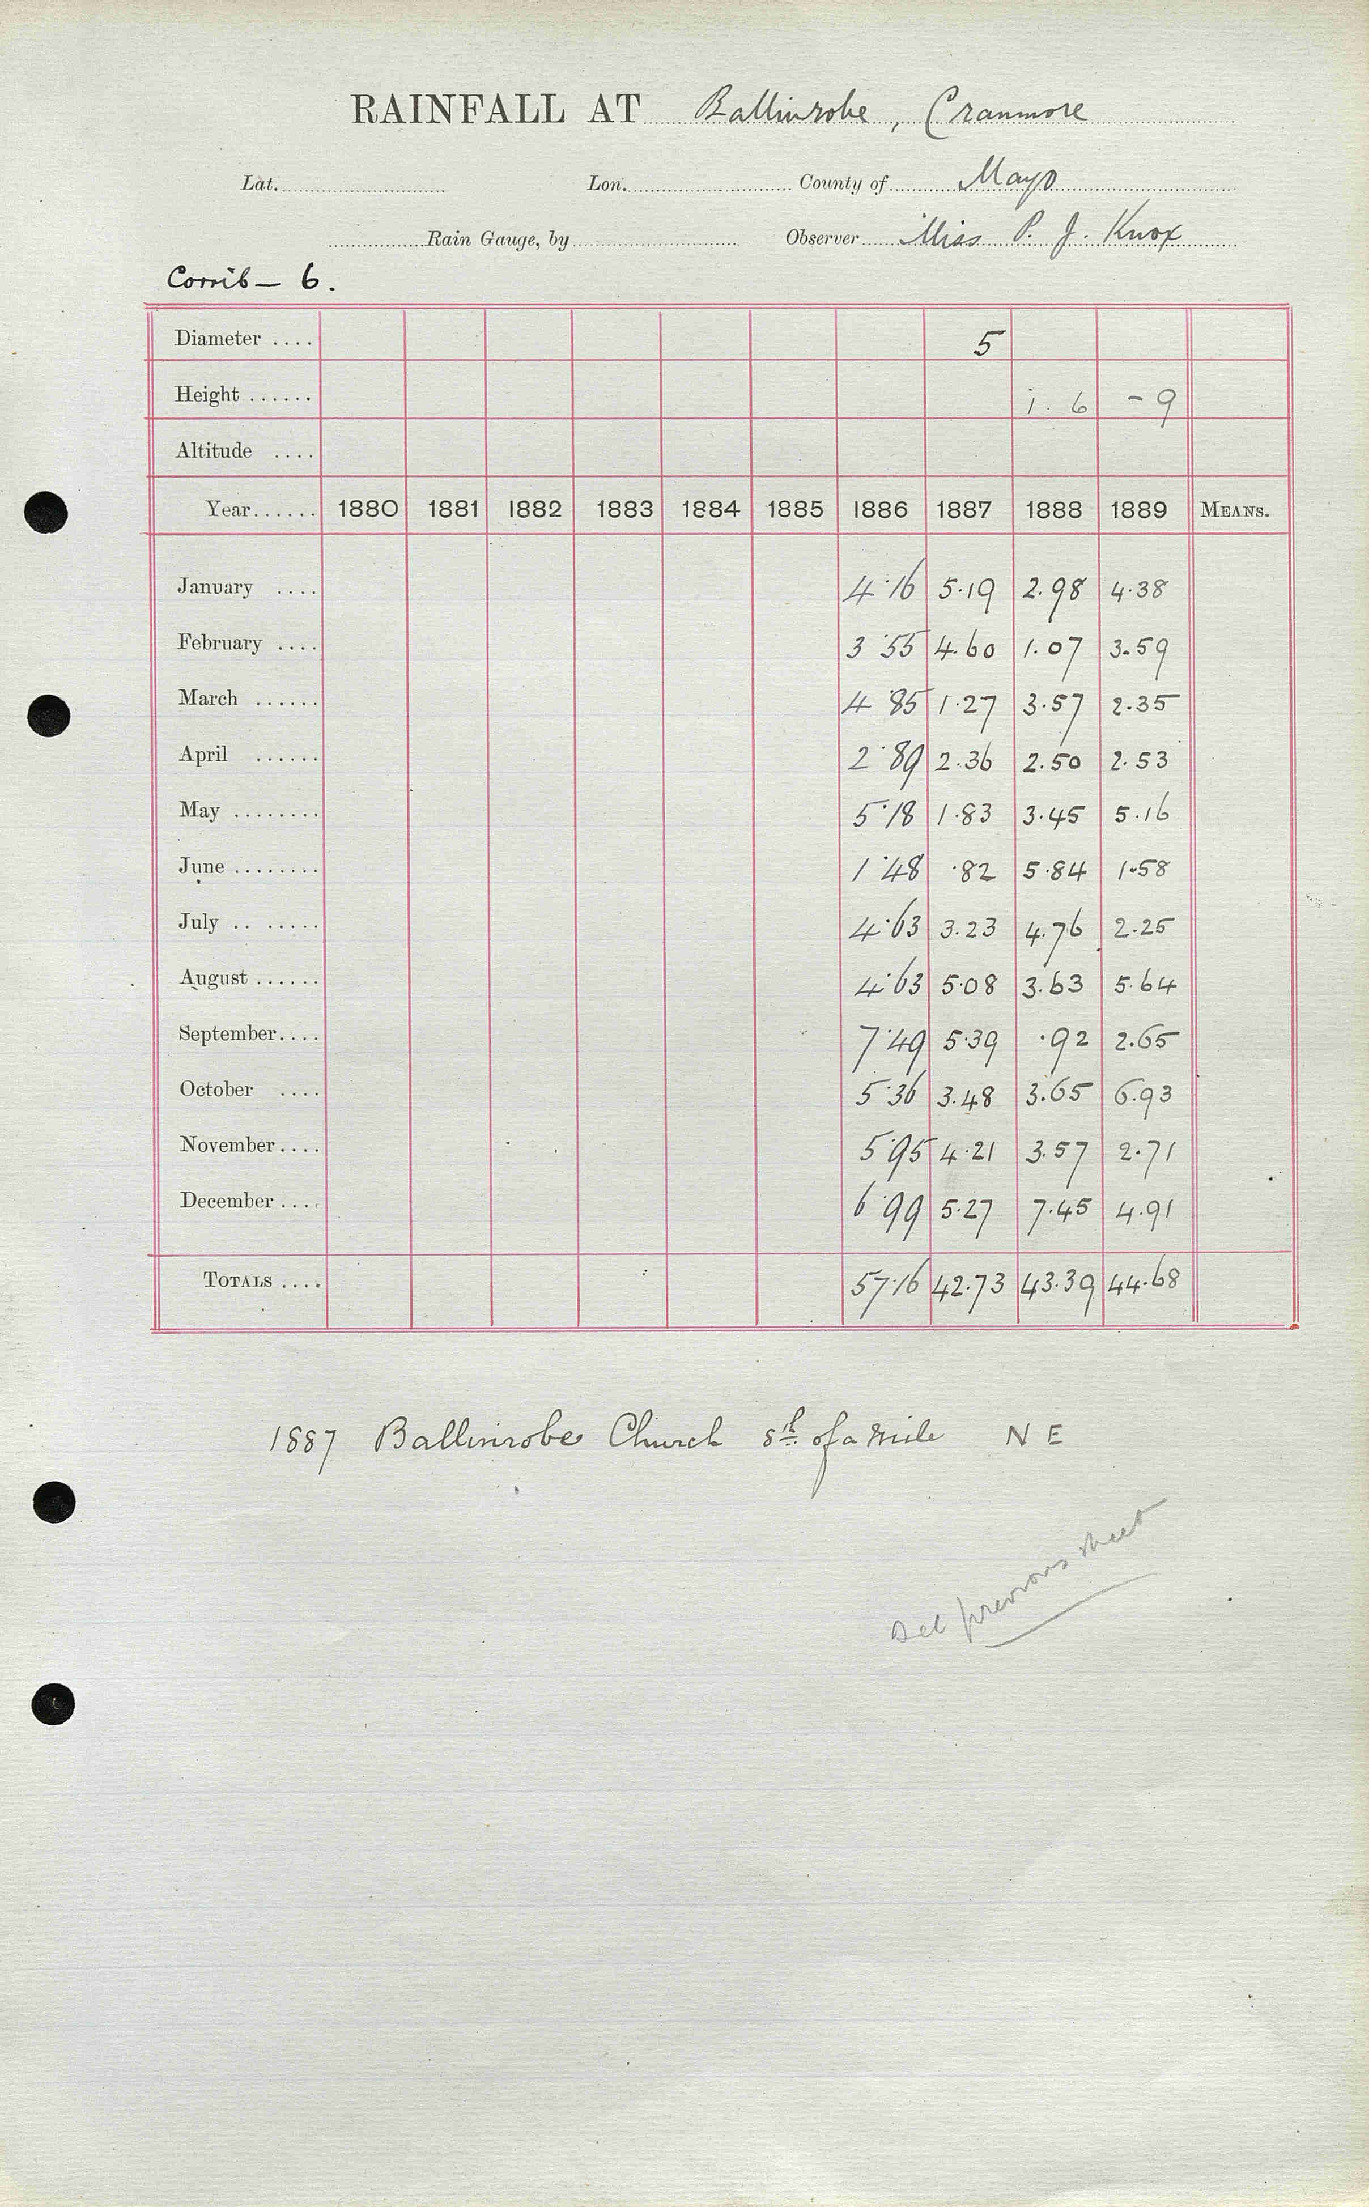 RAINFALL AT Ballinrobe, Cranmore
Lat. Lon. County of Mayo
Rain Gauge, by Observer Miss P. J. Knox
Corrib — 6.
Diameter .... 5
Height ...... 1. 6 - 9
Altitude ....
Year...... 1880 1881 1882 1883 1884 1885 1886 1887 1888 1889 MEANS.
January .... 4.16 5.19 2.98 4.38
February .... 3.55 4.60 1.07 3.59
March ...... 4.85 1.27 3.57 2.35
April ...... 2.89 2.36 2.50 2.53
May ........ 5.18 1.83 3.45 5.16
June ........ 1.48 .82 5.84 1.58
July .. ..... 4.63 3.23 4.76 2.25
August ...... 4.63 5.08 3.63 5.64
September.... 7.49 5.39 .92 2.65
October .... 5.36 3.48 3.65 6.93
November.... 5.95 4.21 3.57 2.71
December.... 6.99 5.27 7.45 4.91
TOTALS .... 57.16 42.73 43.39 44.68
1887 Ballinrobe Church 8th of a mile N E
See previous sheet